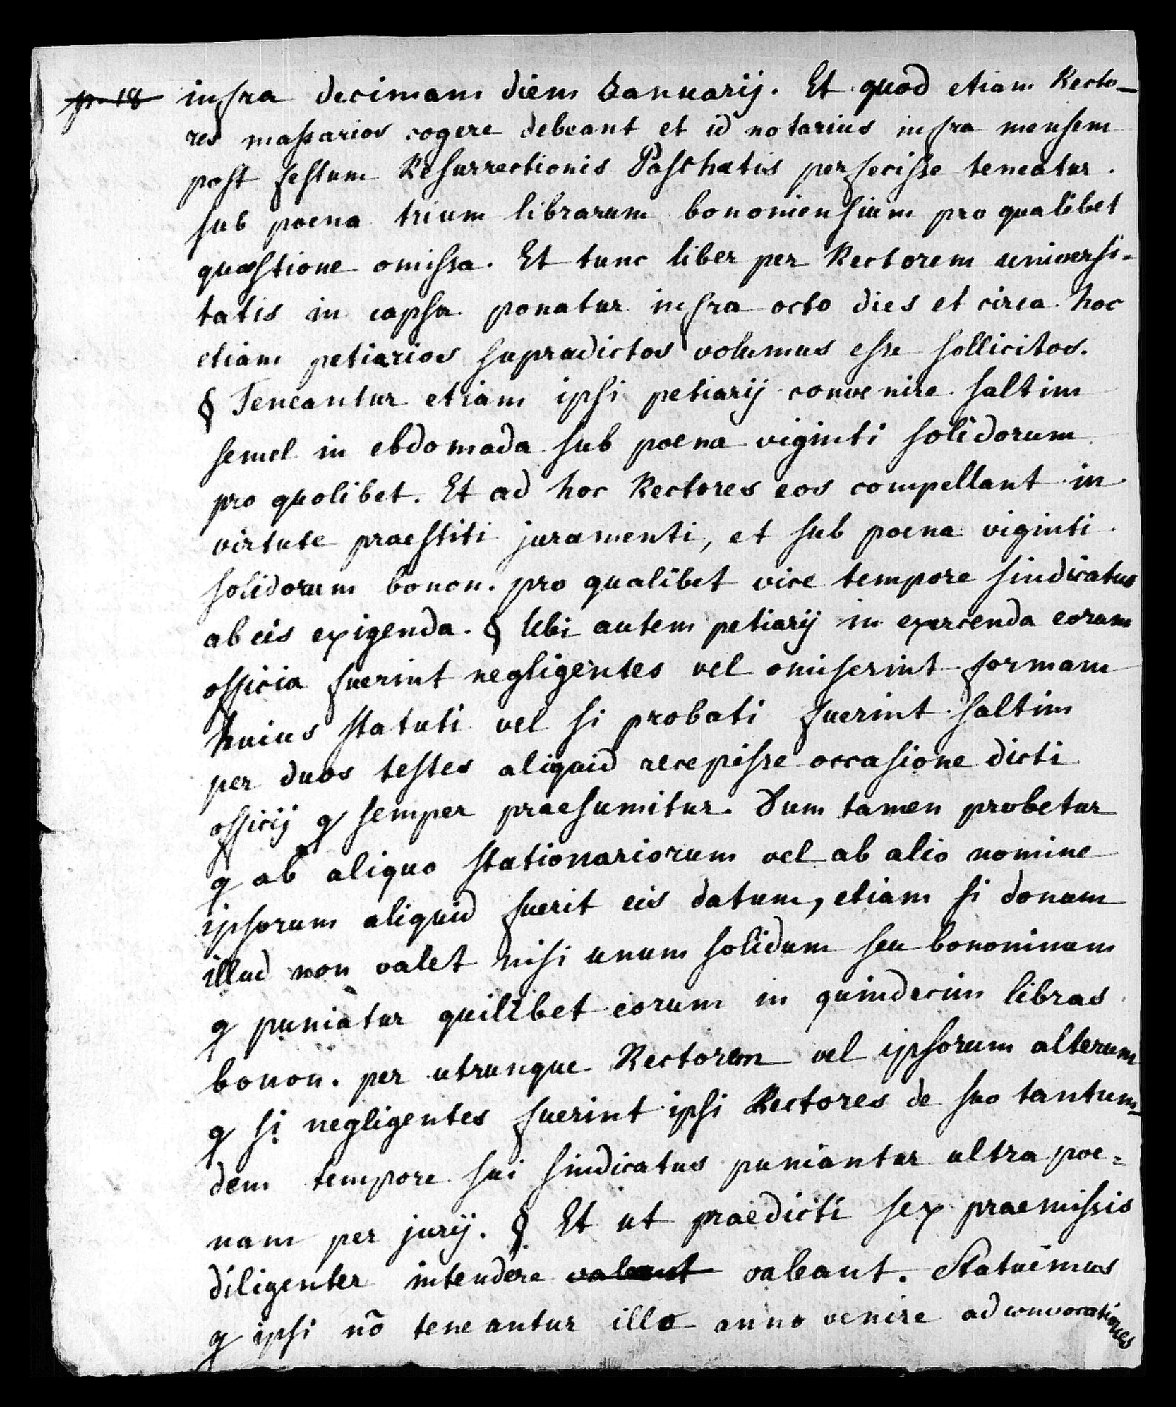 p. 18 infra decimam diem Januarij. Et quod etiam Recto-
res massarios cogere debeant et id notarius infra mensem
post festum Resurrectionis Paschatis perfecisse teneatur.
sub poena trium librarum bononiensium pro qualibet
quaestione omissa. Et tunc liber per Rectorem universi-
tatis in capsa ponatur infra octo dies et circa hoc
etiam petiarios supradictos volumus esse sollicitos.
§ Teneantur etiam ipsi petiarij convenire saltim
semel in ebdomada sub poena viginti solidorum
pro quolibet. Et ad hoc Rectores eos compellant in
virtute praestiti juramenti, et sub poena viginti
solidorum bonon. pro qualibet vice tempore sindicatus
ab eis exigenda. § Ubi autem petiarij in exercenda eorum
officia fuerint negligentes vel omiserint formam
huius statuti vel si probati fuerint saltim
per duos testes aliquid recepisse occasione dicti
officij q semper praesumitur. Dum tamen probetur
q ab aliquo stationariorum vel ab alio nomine
ipsorum aliquid fuerit eis datum, etiam si donum
illud non valet nisi unum solidum seu bononinum
q puniatur quilibet eorum in quindecim libras
bonon. per utrunque Rectorem vel ipsorum alterum
q si negligentes fuerint ipsi Rectores de suo tantum-
dem tempore sui sindicatus puniantur ultra poe=
nam per jurij. § Et ut praedicti sex praemissis
diligenter intendere valeant valeant. Statuimus
q ipsi nõ teneantur illo anno venire ad convocationes